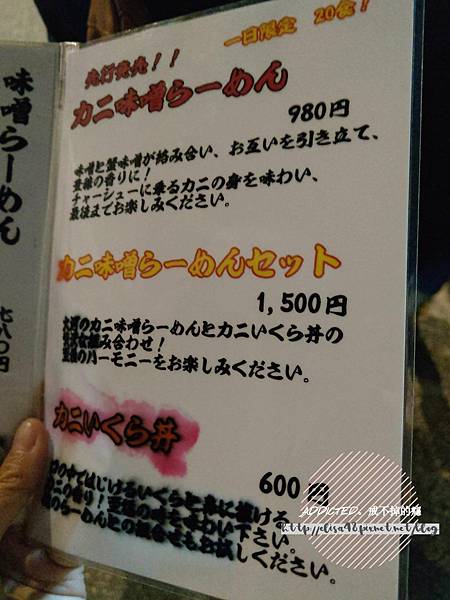 味噌らーめん
七八〇円
一日限定 20食!
先行発売!!
カニ味噌らーめん
980円
味噌と蟹味噌が絡み合い、お互いを引き立て、
至福の香りに!
チャーシューに乗るカニの身を味わい、
最後までお楽しみください。
カニ味噌らーめんセット
1,500円
大河のカニ味噌らーめんとカニいくら丼の
組み合わせ!
至福のハーモニーをお楽しみください。
カニいくら丼
600円
の中ではじけるいくらと共に
カニの香り!至福の味を味わい下さい。
らーめんとの組合せもお試しください。
ADDICTED、戒不掉的癮
http://elisa98.pixnet.net/blog